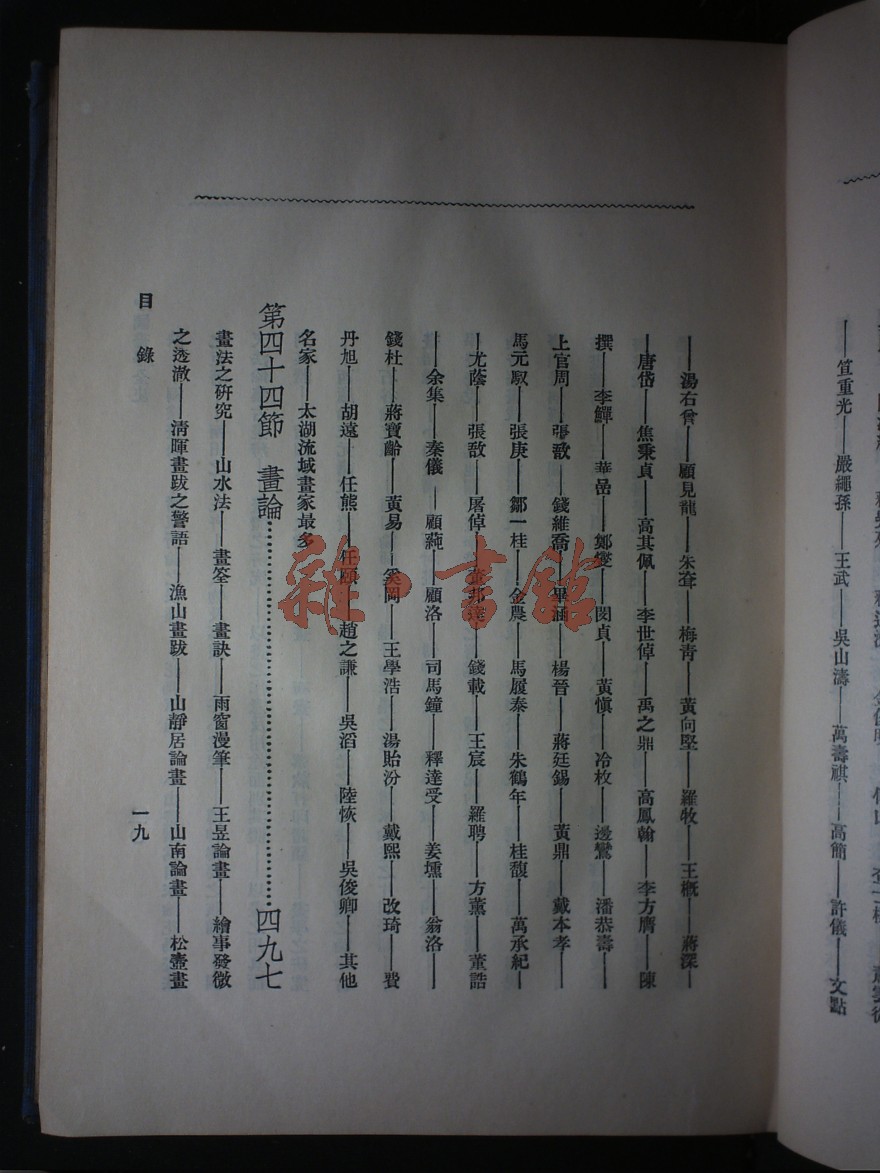 笪重光——嚴繩孫——王武——吳山濤——萬壽祺——高簡——許儀——文點
——湯右曾——顧見龍——朱耷——梅青——黃向堅——羅牧——王概——蔣深——
——唐岱——焦秉貞——高其佩——李世倬——禹之鼎——高鳳翰——李方膺——陳
撰——李鱓——華嵒——鄭燮——閔貞——黃愼——冷枚——邊鸞——潘恭壽——
上官周——張敔——錢維喬——畢涵——楊晉——蔣廷錫——黃鼎——戴本孝——
馬元馭——張庚——鄒一桂——金農——馬履泰——朱鶴年——桂馥——萬承紀——
——尤蔭——張敔——屠倬——董邦達——錢載——王宸——羅聘——方薰——董誥
——余集——秦儀——顧蒓——顧洛——司馬鐘——釋達受——姜壎——翁洛——
錢杜——蔣寶齡——黃易——奚岡——王學浩——湯貽汾——戴熙——改琦——費
丹旭——胡遠——任熊——任頤——趙之謙——吳滔——陸恢——吳俊卿——其他
名家——太湖流域畫家最多
第四十四節 畫論……………………四九七
畫法之硏究——山水法——畫筌——畫訣——雨窗漫筆——王昱論畫——繪事發微
之透澈——清暉畫跋之警語——漁山畫跋——山靜居論畫——山南論畫——松壺畫
目錄
一九
雜·書館